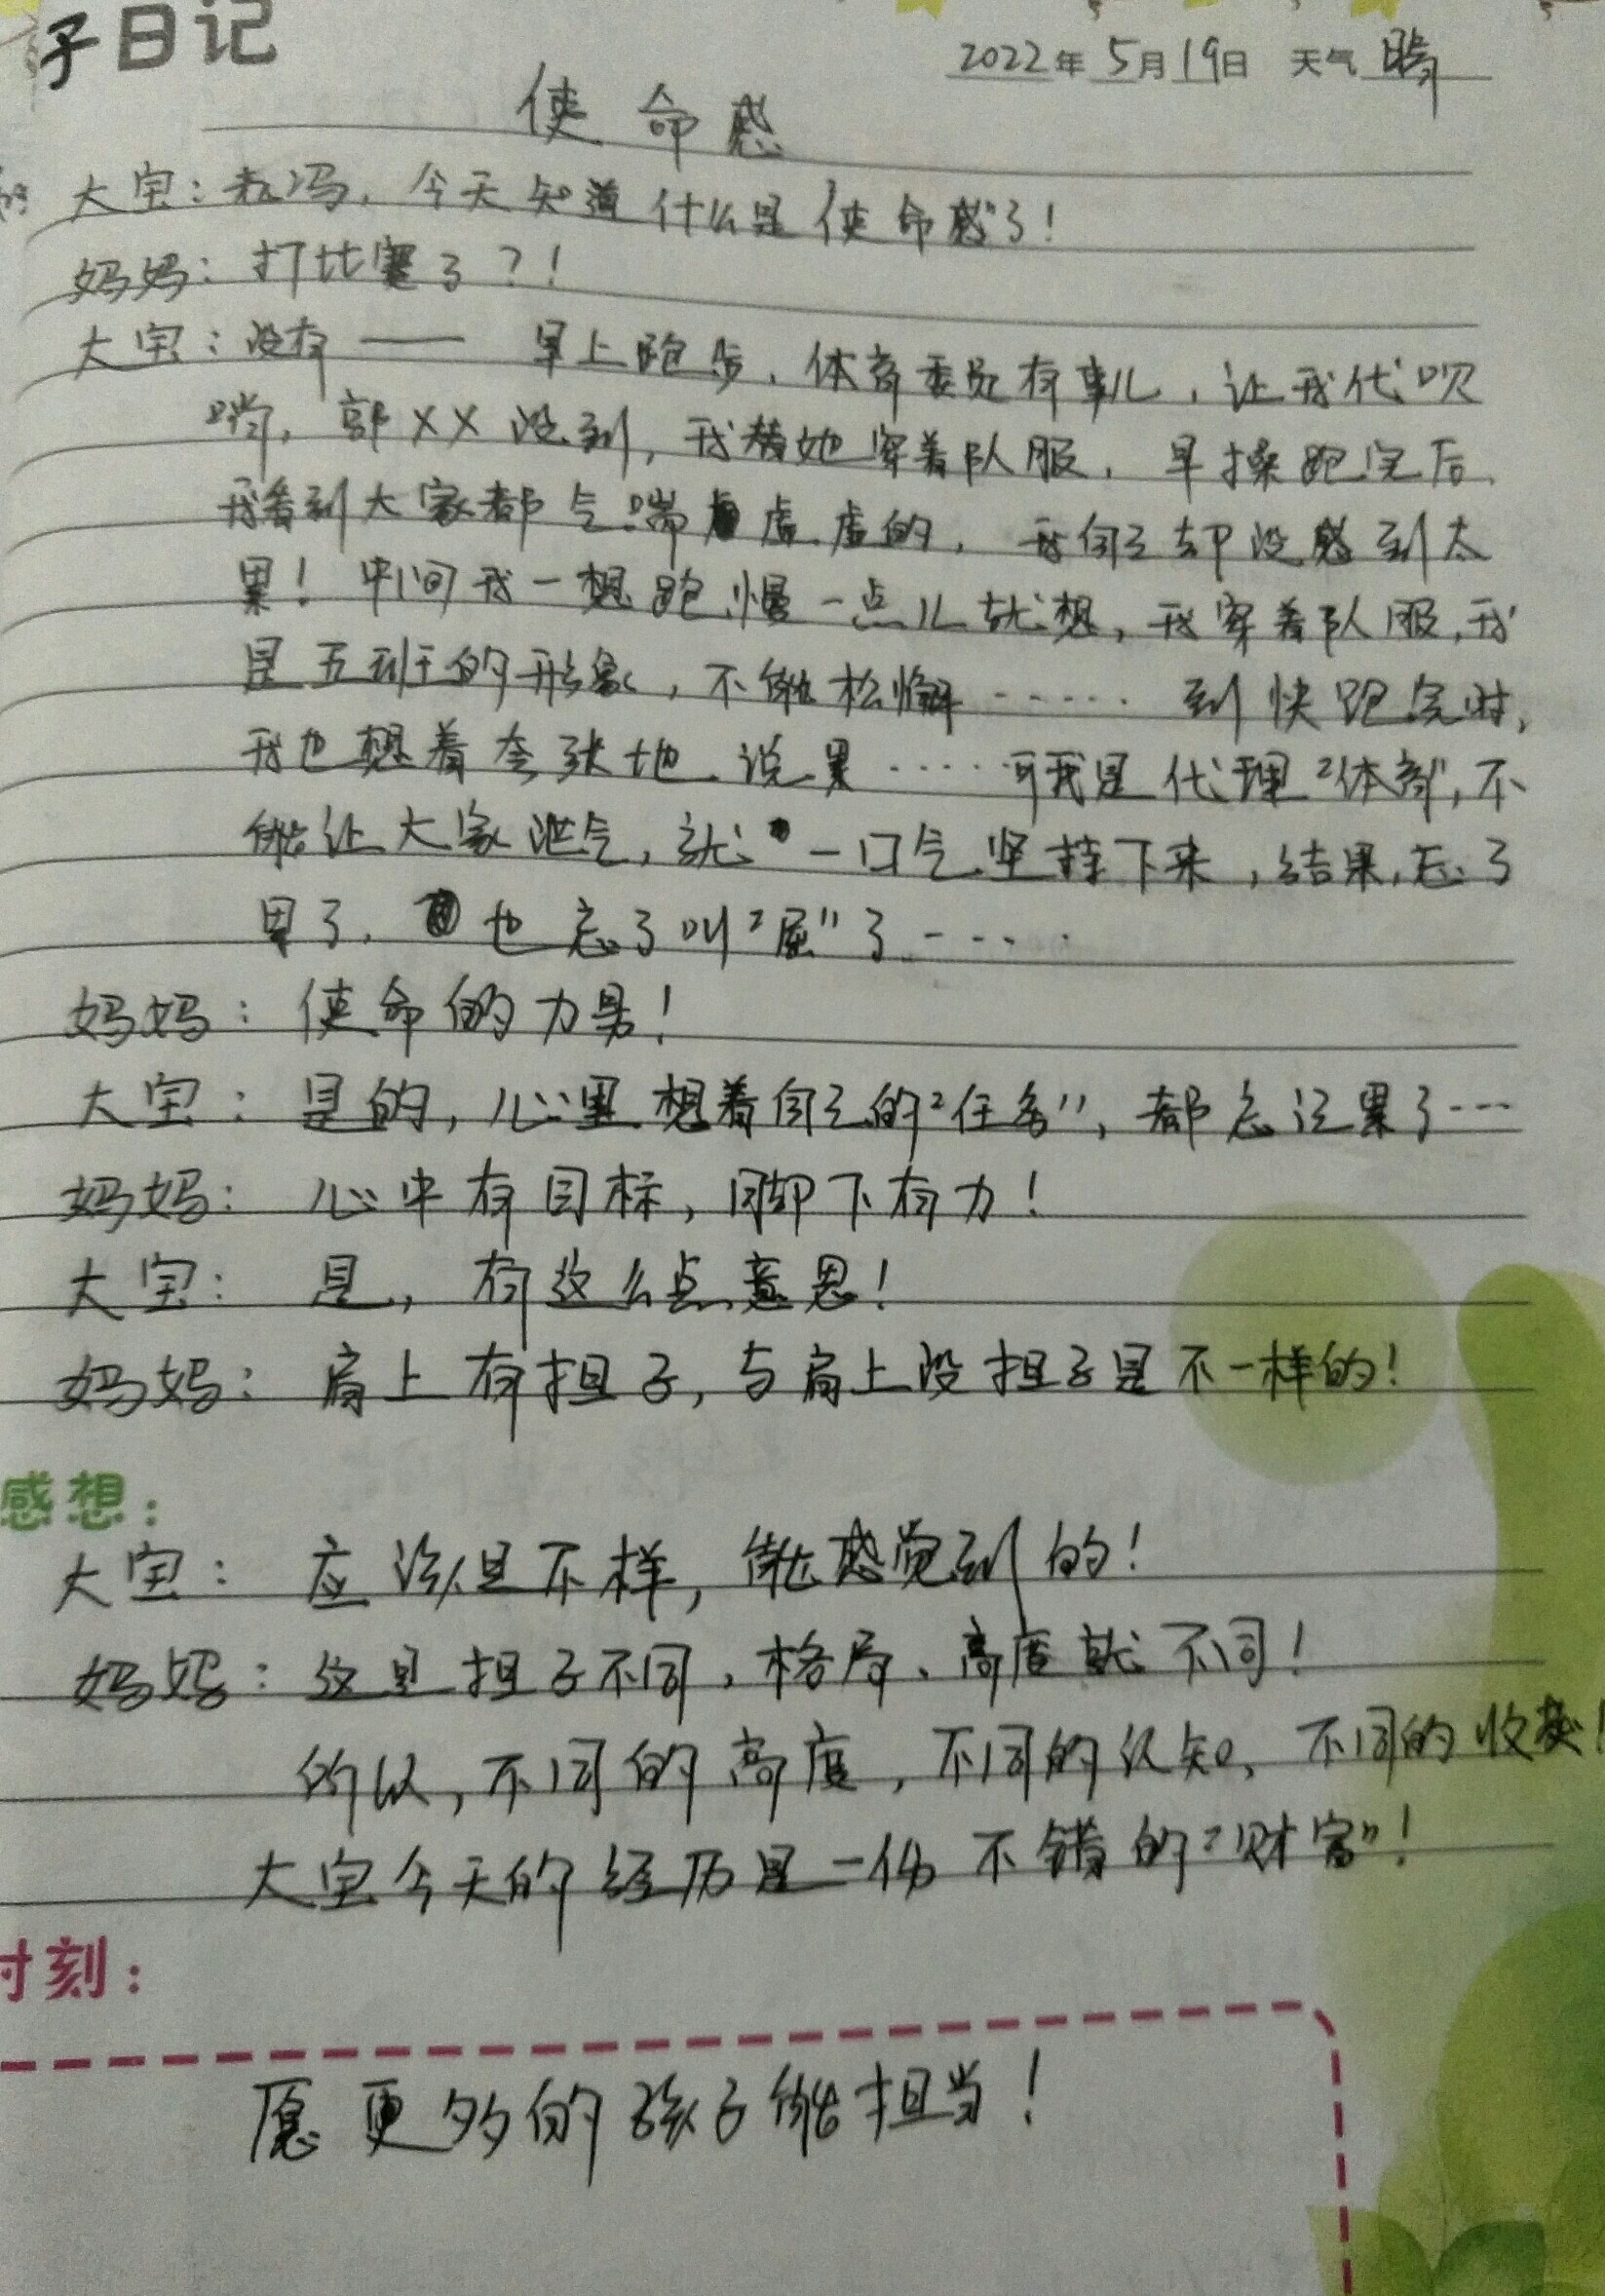 子日记
2022年5月19日 天气 晴
使命感
大宝：老冯，今天知道什么是“使命感”了！
妈妈：打比赛了？！
大宝：没有—— 早上跑步，体育委员有事儿，让我代吹
哨，郭××没到，我替她穿着队服，早操跑完后，
我看到大家都气喘虚虚的，我自己却没感到太
累！中间我一想跑慢一点儿就想，我穿着队服，我
是五班的形象，不能松懈…… 到快跑完时，
我也想着夸张地说累……可我是代理“体育”，不
能让大家泄气，就一口气坚持下来，结果，忘了
累了，也忘了叫“屈”了……
妈妈：使命的力量！
大宝：是的，心里想着自己的“任务”，都忘记累了…
妈妈：心中有目标，脚下有力！
大宝：是，有这么点意思！
妈妈：肩上有担子，与肩上没担子是不一样的！
感想：
大宝：应该是不样，能感觉到的！
妈妈：这是担子不同，格局、高度就不同！
所以，不同的高度，不同的认知，不同的收获！
大宝今天的经历是一份不错的“财富”！
时刻：
愿更多的孩子能担当！